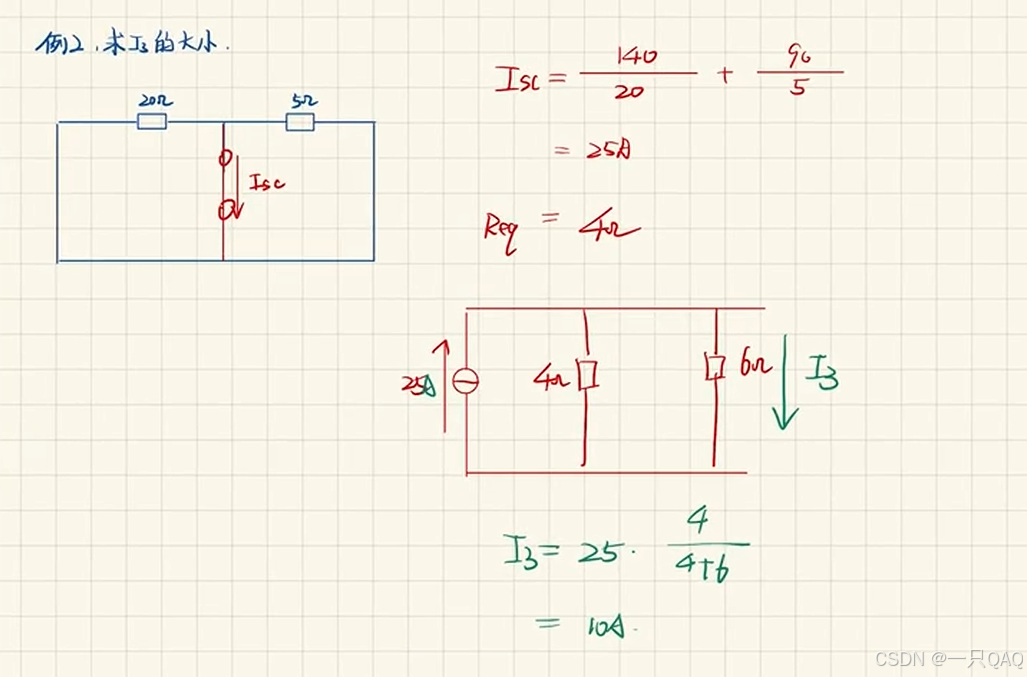 例2.求I3的大小.
20Ω 5Ω
Isc
Isc = 140/20 + 90/5
= 25A
Req = 4Ω
25A 4Ω 6Ω I3
I3 = 25 · 4/4+6
= 10A.
CSDN @一只QAQ